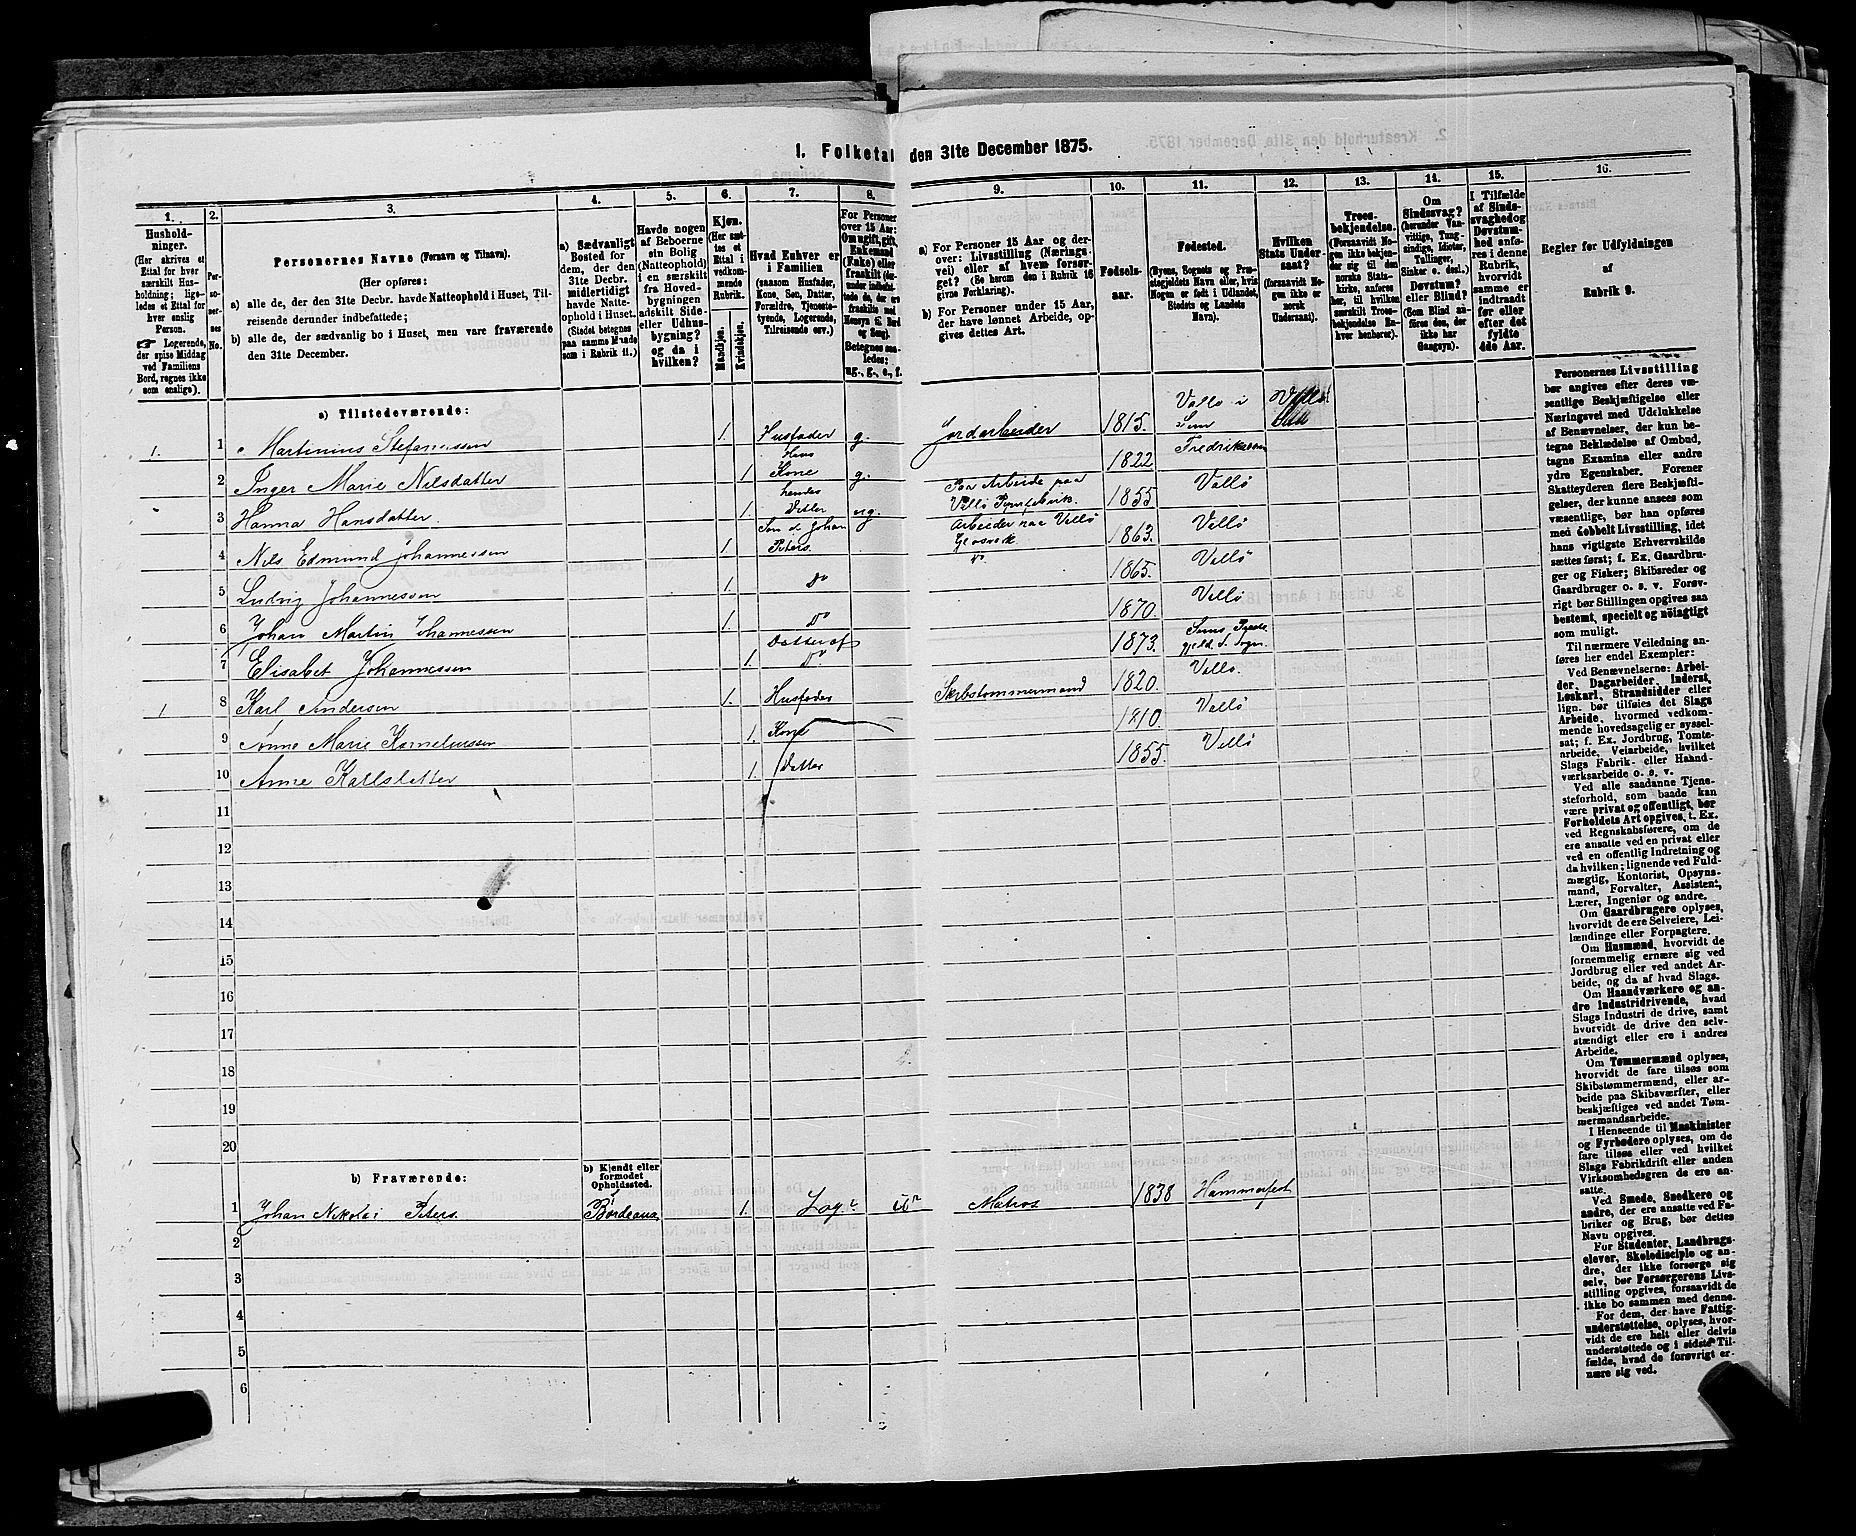 1. Folketal den 31te December 1875.
1.
2.
3.
4.
5.
6.
7.
8.
9.
10.
11.
12.
13.
14.
15.
16.
Hushold-
ninger.
(Her skrives et
Ettal for hver
særskilt Hus-
holdning; lige-
ledes et Ettal for
hver enslig
Person.
☞ Logerende,
der spise Middag
ved Familiens
Bord, regnes ikke
som enslige).
Per-
soner-
nes
No.
Personernes Navne (Fornavn og Tilnavn).
(Her opføres:
a) alle de, der den 31te Decbr. havde Natteophold i Huset, Til-
reisende derunder indbefattede;
b) alle de, der sædvanlig bo i Huset, men vare fraværende
den 31te December.
a) Sædvanligt
Bosted for
dem, der den
31te Decbr.
midlertidigt
havde Natte-
ophold i Huset.
(Stedet betegnes
paa samme Maade
som i Rubrik 11.)
Havde nogen
af Beboerne
sin Bolig
(Natteophold)
i en særskilt
fra Hoved-
bygningen
adskilt Side-
eller Udhus-
bygning?
og da i
hvilken?
Kjøn.
(Her sæt-
tes et
Ettal i
vedkom-
mende
Rubrik.
Mandkjøn.
Kvindekjøn.
Hvad Enhver er
i Familien
(saasom Husfader,
Kone, Søn, Datter,
Forældre, Tjeneste-
tyende, Logerende,
Tilreisende osv.)
For Personer
over 15 Aar:
Om ugift, gift,
Enkemand
(Enke) eller
fraskilt
Betegnes saa-
ledes:
ug., g., e., f.
a) For Personer 15 Aar og der-
over: Livsstilling (Nærings-
vei) eller af hvem forsør-
get? (Se herom den i Rubrik 16
givne Forklaring).
b) For Personer under 15 Aar,
der have lønnet Arbeide, op-
gives dettes Art.
Fødsels-
aar.
Fødested.
(Byens, Sognets og Præ-
stegjeldets Navn eller, hvis
Nogen er født i Udlandet,
Stedets og Landets
Navn).
Hvilken
Stats Under-
saat?
(forsaavidt No-
gen ikke er
norsk
Undersaat).
Troes-
bekjendelse.
(Forsaavidt No-
gen ikke bekjen-
der sig til den
norske Stats-
kirke, anføres
her, til hvilken
særskilt Troes-
bekjendelse En-
hver henhører).
Om
Sindssvag?
(herunder Van-
vittige, Tung-
sindige, Idioter,
Tullinger,
Sinker o. desl.)
Døvstum?
eller Blind?
(Som Blind an-
føres den, der
ikke har
Gangsyn).
I Tilfælde
af Sinds-
svaghed og
Døvstum-
hed anfø-
res i denne
Rubrik,
hvorvidt
samme er
indtraadt
før eller
efter det
fyldte
4de Aar.
Regler for Udfyldningen
af
Rubrik 9.
a) Tilstedeværende:
1. 1 Martinius Stefanussen 1. Husfader g. Jordarbeider 1815. Vallø i Sem
2 Inger Marie Nilsdatter 1 Hans Kone g. 1822 Fredriksværn
3 Hanna Hansdatter. 1. hendes Datter ug. Paa Arbeide paa Vallø 1855 Vallø
4 Nils Edmund Johannessen 1. Søn af Johan Peters. Arbeider paa Vallø Glasværk 1863. Vallø
5 Ludvig Johannessen 1. Do Do 1865. Vallø
6 Johan Martin Johannessen 1. Do 1870. Vallø
7 Elisabet Johannessen 1. Datter af Do 1873. Sems
1 8 Karl Andersen 1. Husfader Skibstømmermand 1820. Vallø.
9 Anne Marie Korneliussen 1. Kone 1810. Vallø
10 Anne Karlsdatter 1. Datter 1855. Vallø
11
12
13
14
15
16
17
18
19
20
b) Fraværende:
b) Kjendt eller
formodet
Opholdssted.
1 Johan Nikolai Peters. i Bordeaux 1. Log. Matros. 1838 Hammerfest
2
3
4
5
6
Personernes Livsstilling
bør angives efter deres væ-
sentlige Beskjæftigelse eller
Næringsvei med Udelukkelse
af Benævnelser, der kun be-
tegne Beklædelse af Ombud,
tagne Examina eller andre
ydre Egenskaber. Forener
Skatteyderen flere Beskjæfti-
gelser, der kunne ansees som
væsentlige, bør han opføres
med dobbelt Livsstilling, idet
hans vigtigste Erhvervskilde
sættes først; f. Ex. Gaardbru-
ger og Fisker; Skibsreder og
Gaardbruger o. s. v. Forøv-
rigt bør Stillingen opgives saa
bestemt, specielt og nøiagtigt
som muligt.
Til nærmere Veiledning an-
føres her endel Exempler:
Ved Benævnelserne: Arbei-
der, Dagarbeider, Inderst,
Løskarl, Strandsidder eller
lign. bør tilføies det Slags
Arbeide, hvormed vedkom-
mende hovedsagelig er syssel-
sat; f. Ex. Jordbrug, Tomte-
arbeide, Veiarbeide, hvilket
Slags Fabrik- eller Haand-
værksarbeide o. s. v.
Ved alle saadanne Tjene-
steforhold, som baade kan
være privat og offentligt, bør
Forholdets Art opgives, t. Ex.
ved Regnskabsførere, om de
ere ansatte ved en privat eller
ved en offentlig Indretning og
da hvilken; lignende ved Fuld-
mægtig, Kontorist, Opsyns-
mand, Forvalter, Assistent,
Lærer, Ingeniør og andre.
Om Gaardbrugere oplyses,
hvorvidt de ere Selveiere, Lei-
lændinge eller Forpagtere.
Om Husmænd, hvorvidt de
fornemmelig ernære sig ved
Jordbrug eller ved andet Ar-
beide, og da af hvad Slags.
Om Haandværkere og an-
dre Industridrivende, hvad
Slags Industri de drive, samt
hvorvidt de drive den selv-
stændigt eller ere i andres
Arbeide.
Om Tømmermænd oplyses,
hvorvidt de fare tilsøs som
Skibstømmermænd, eller ar-
beide paa Skibsværfter, eller
beskjæftiges ved andet Tøm-
mermandsarbeide.
I Henseende til Maskinister
og Fyrbødere oplyses, om de
fare tilsøs eller ved hvilket
Slags Fabrikdrift eller anden
Virksomhedsgren de ere an-
satte.
Ved Smede, Snedkere og
andre, der ere ansatte ved Fa-
briker og Brug, bør dettes
Navn opgives.
For Studenter, Landbrugs-
elever, Skoledisciple og an-
dre, der ikke forsørge sig
selv, bør Forsørgerens Livs-
stilling opgives, forsaavidt de
ikke bo sammen med denne.
For dem, der have Fattig-
understøttelse, oplyses, hvor-
vidt de ere helt eller delvis
understøttede og i sidste Til-
fælde, hvad de forøvrigt er-
nære sig ved.